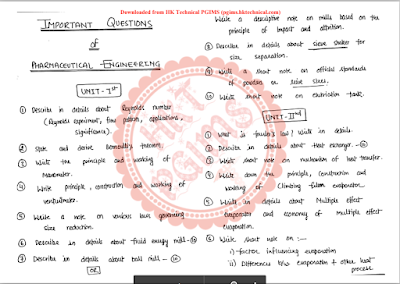 Downloaded from HK Technical PGIMS (pgims.hktechnical.com)
IMPORTANT QUESTIONS
of
PHARMACEUTICAL ENGINEERING
UNIT-Ist
① Describe in details about Reynolds number
(Reynolds experiment, flow pattern, applications,
significance).
② State and derive Bernoulli's theorem.
③ Write the principle and working of
Manometer.
④ Write principle, construction and working of
venturimeter.
⑤ Write a note on various laws governing
size reduction
⑥ Describe in details about fluid energy mill
⑦ Describe in details about ball mill
OR
Write a descriptive note on mills based on the
principle of impact and attrition.
⑧ Describe in details about sieve shaker for
size separation.
⑨ Write a short note on official standards
of powders or sieve sizes.
⑩ Write short note on elutriation tank.
UNIT-IInd
① What is fourier's law? Write in details.
② Describe in details about heat exchanger.
③ Write short note on mechanism of heat transfer.
④ Write down the principle, construction and
working of Climbing film evaporator.
⑤ Write in details about Multiple effect
evaporator and economy of multiple effect
evaporation.
⑥ Write short note on :-
i) factor influencing evaporation
ii) Differences b/w evaporation & other heat
process
HKT
PGIMS